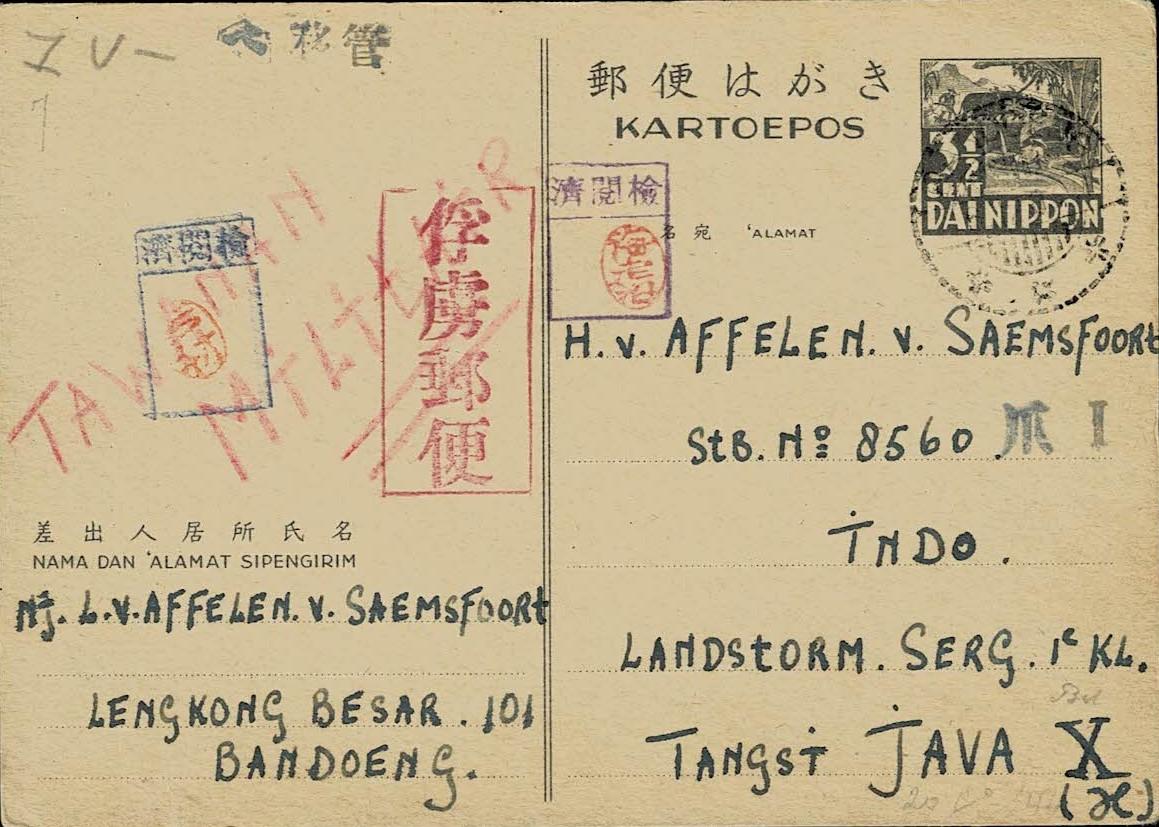 IV-
7
移管
TAWANAN
MILITAIR
検閲済
俘虜郵便
差出人居所氏名
NAMA DAN 'ALAMAT SIPENGIRIM
Nj. L.v.AFFELEN.v.SAEMSFOORt
LENGKONG BESAR.101
BANDOENG.
郵便はがき
KARTOEPOS
3½
CENT
DAI NIPPON
検閲済
名宛 'ALAMAT
H.v.AFFELEN.v.SAEMSFOORt
StB.No 8560. 爪 I
INDO.
LANDStORM.SERG.1e KL.
TANGSI JAVA X